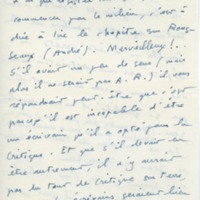 commence par le violein, c'est à
dire à lire le chapitre sur Rous
seaux (André). Merveilleux!
S'il avait un peu de sens (mais
alors il ne serait pas A. R.) il vous
répondrait peut-être que c'est
parce qu'il est incapable d'être
un écrivain qu'il a opté pour la
Critique. Et que s'il devait en
être autrement, il n'y aurait
pas du tout de Critique sur terre,
écrivains seraient bien